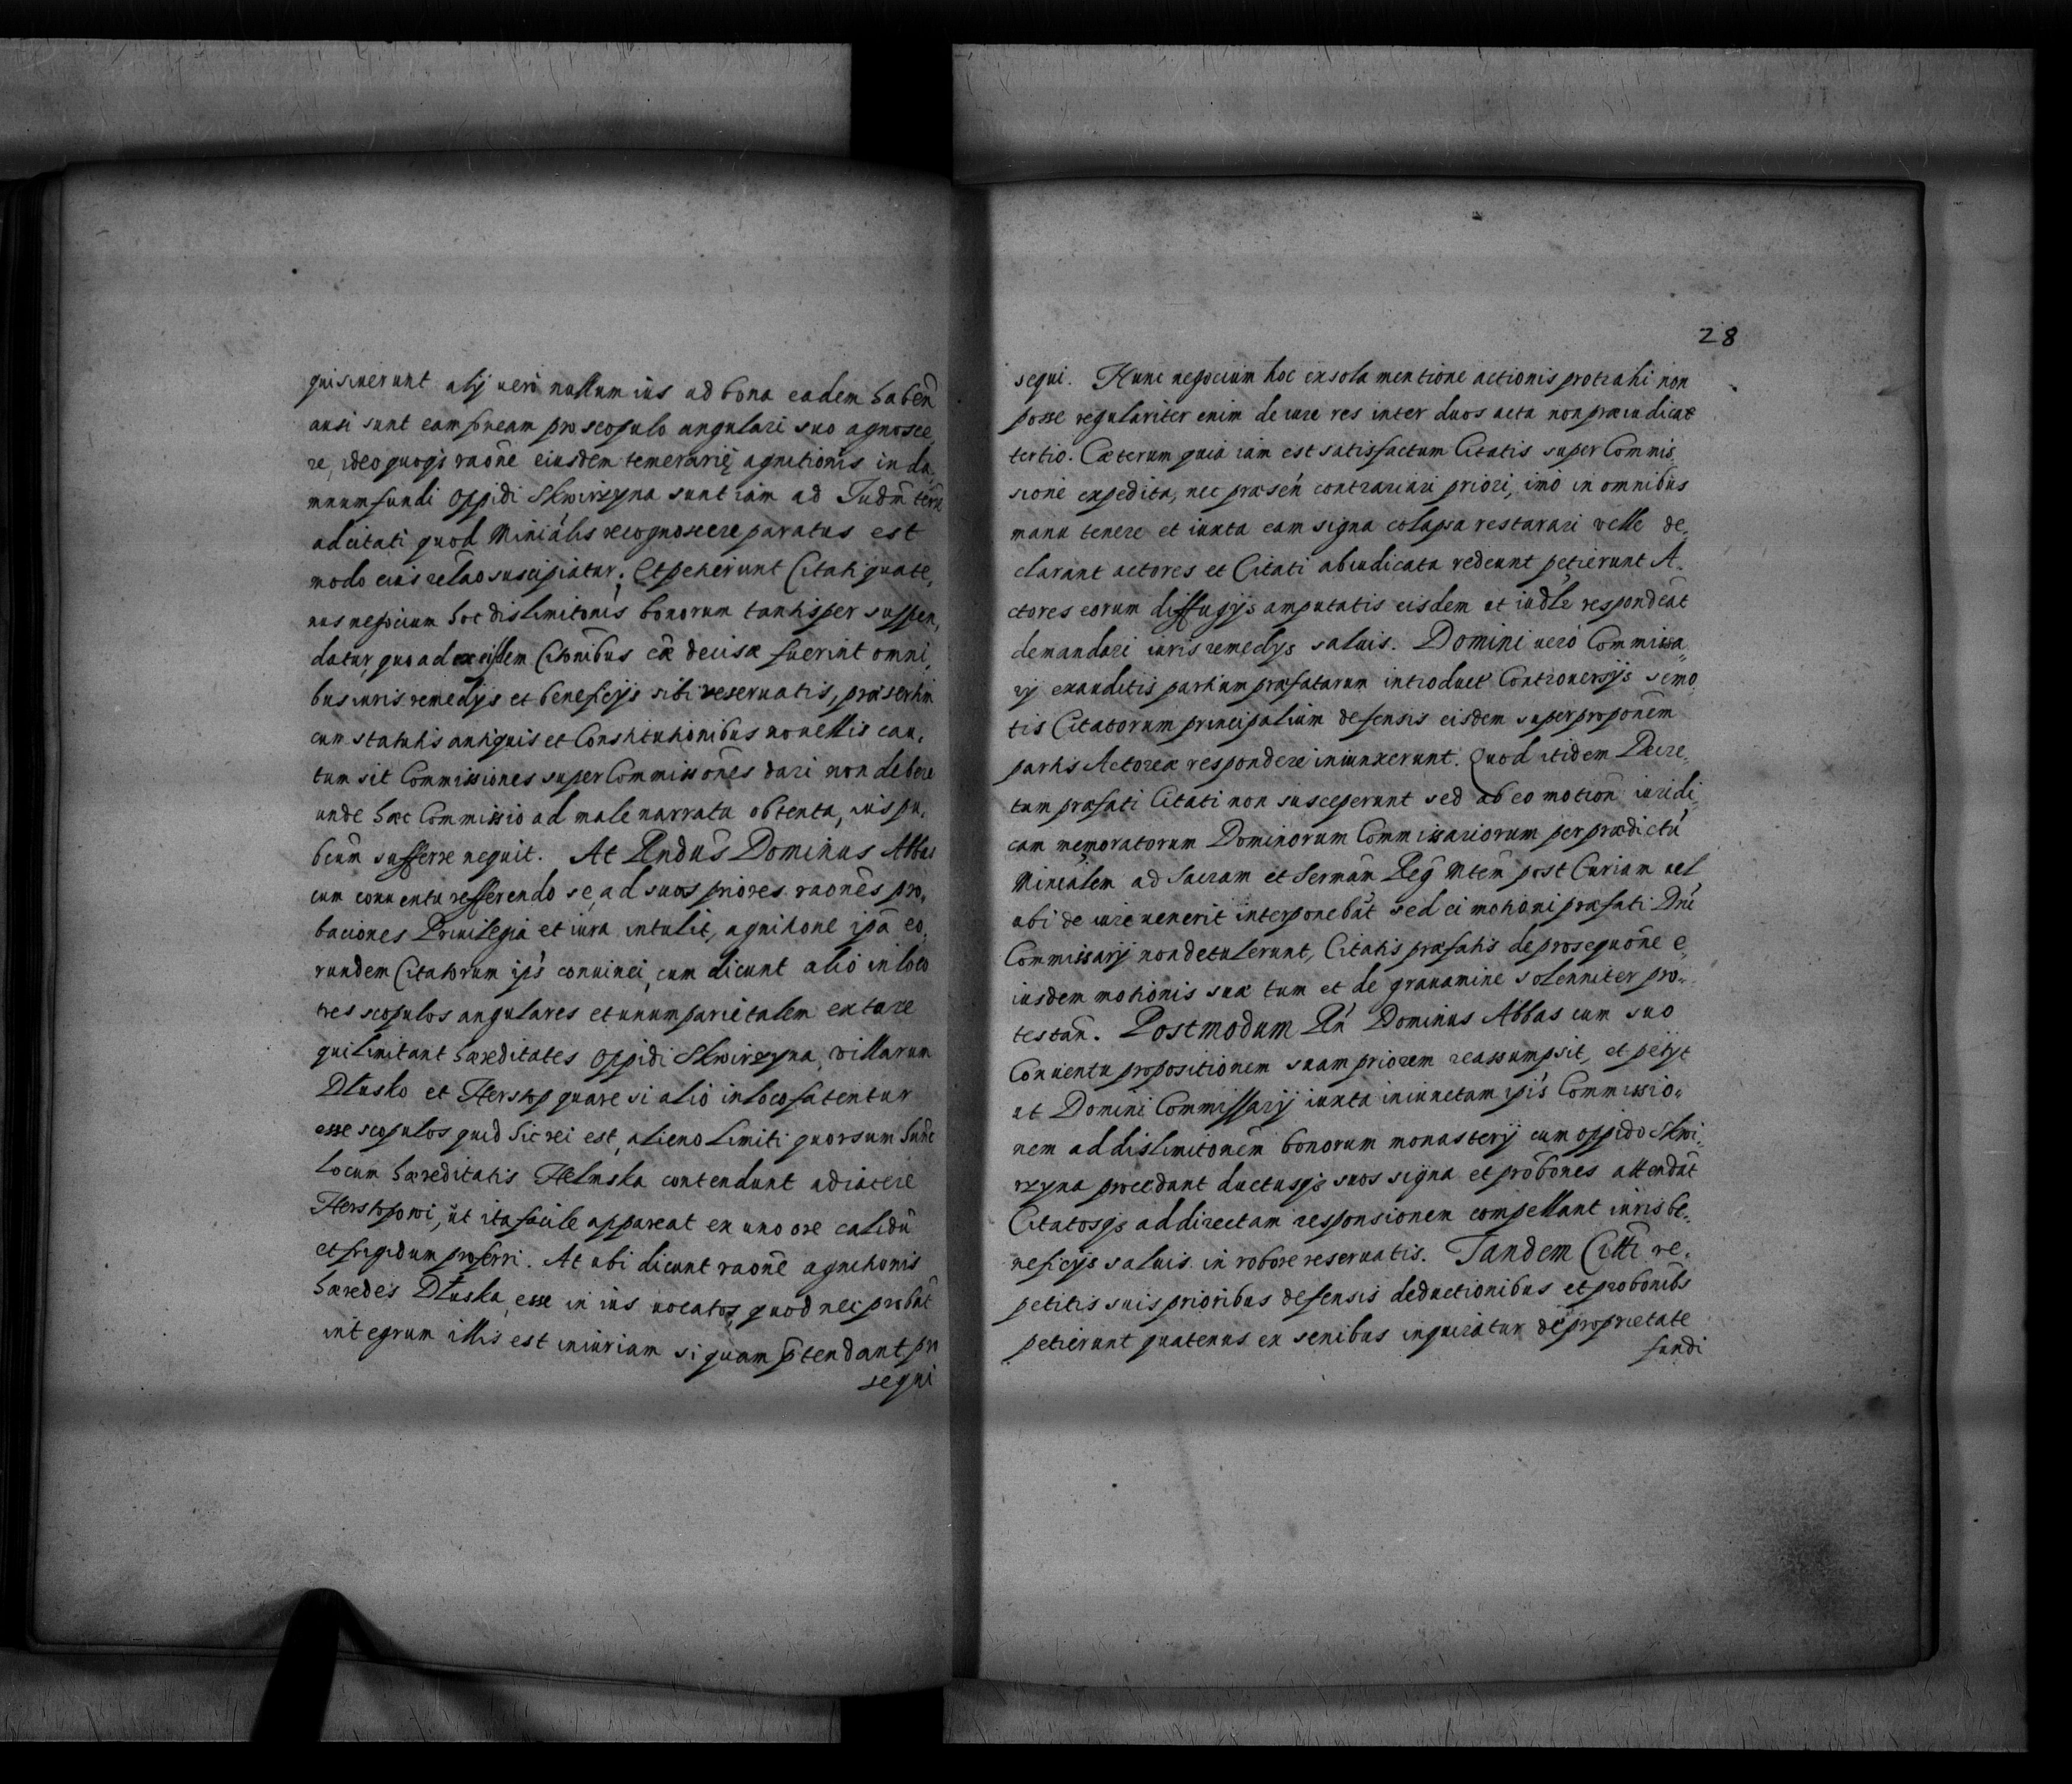 quisiuerunt alij uerò nullum ius ad bona eadem habeñ
ausi sunt eam spream pro scopulo angulari suo agnosce,
re, ideo quoqȝ raõne eiusdem temerarię agnitionis in da,
mnum fundi oppidi Skwirzyna sunt iam ad Iudm̃ terr̃
adcitati quod Miniãlis recognoscere paratus est
modo eius relão suscipiatur; Et petierunt Citati quate,
nus negocium hoc dislimitonis bonorum tantisper suspen,
datur, quo ad ex eisdem Citõnibus eæ decisæ fuerint omni,
bus iuris remedijs et beneficijs sibi reseruatis, præsertim
cum statutis antiquis et Constitutionibus nouellis cau,
tum sit Commissiones super Commissõnes dari non debere
unde hæc Commissio ad male narrata obtenta, uis pu,
bcum sufferre nequit. At Rndus Dominus Abbas
cum conuentu refferendo se, ad suas priores raones pro,
baciones Priuilegia et iura intulit, agnitione ipã eo,
rundem Citatorum ips̃ conuinci, cum dicunt alio in loco
tres scopulos angulares et unum parietalem extare
qui limitant hæreditates oppidi Skwirzyna, villarum
Dłusko et Herstop quare si alio in loco fatentur
esse scopulos quid hic rei est, alieno limiti quorsum hunc
locum hæreditatis Helmska contendunt adiacere
Herstopowi, ut ita facile appareat ex uno ore calidũ
et frigidum proferri. At ubi dicunt raõne agnitionis
hæredes Dłuska, esse in ius uocatos, quod nec probãt
integrum illis est iniuriam si quam ptendant pro
sequi
28
sequi. Hunc negocium hoc ex sola mentione actionis protrahi non
posse regulariter enim de iure res inter duos acta non præiudicat
tertio. Cæterum quia iam est satisfactum Citatis super Commis,
sione expedita, nec præseñ contrariari priori, imò in omnibus
manu tenere et iuxta eam signa colapsa restaurari velle de,
clarant actores et Citati abiudicata redeunt petierunt A,
ctores eorum diffugijs amputatis eisdem ut iudle respondeãt
demandari iuris remedys saluis. Domini uerò Commissa,
rij exauditis partium præfatarum introduct Controuersijs semo,
tis Citatorum principalium defensis eisdem super proponem
partis Actoreæ respondere iniunxerunt. Quod itidem Decre,
tum præfati Citati non susceperunt sed ab eo motioñ iuridi,
cam memoratorum Dominorum Commissariorum per prædictũ
Minialem ad Sacram et Sermãm Reg̃ Mtem post Curiam uel
ubi de iure uenerit interponebãt sed ei motioni præfati Dñi
Commissarij non detulerunt, Citatis præfatis de prosequõne e,
iusdem motionis suæ tum et de grauamine solenniter pro,
testañ. Postmodum Rñ Dominus Abbas cum suo
Conuentu propositionem suam priorem reassumpsit, et petijt
ut Domini Commissarij iuxta iniunctam ipis Commissio,
nem ad dislimitonem bonorum monasterij cum oppido Skwi,
rzyna procedant ductusqȝ suos signa et probones attendãt
Citatosqȝ ad directam responsionem compellant iuris be,
neficijs saluis in robore reseruatis. Tandem Citti re,
petitis suis prioribus defensis deductionibus et probonibs
petierunt quatenus ex senibus inquiratur de proprietate
fundi